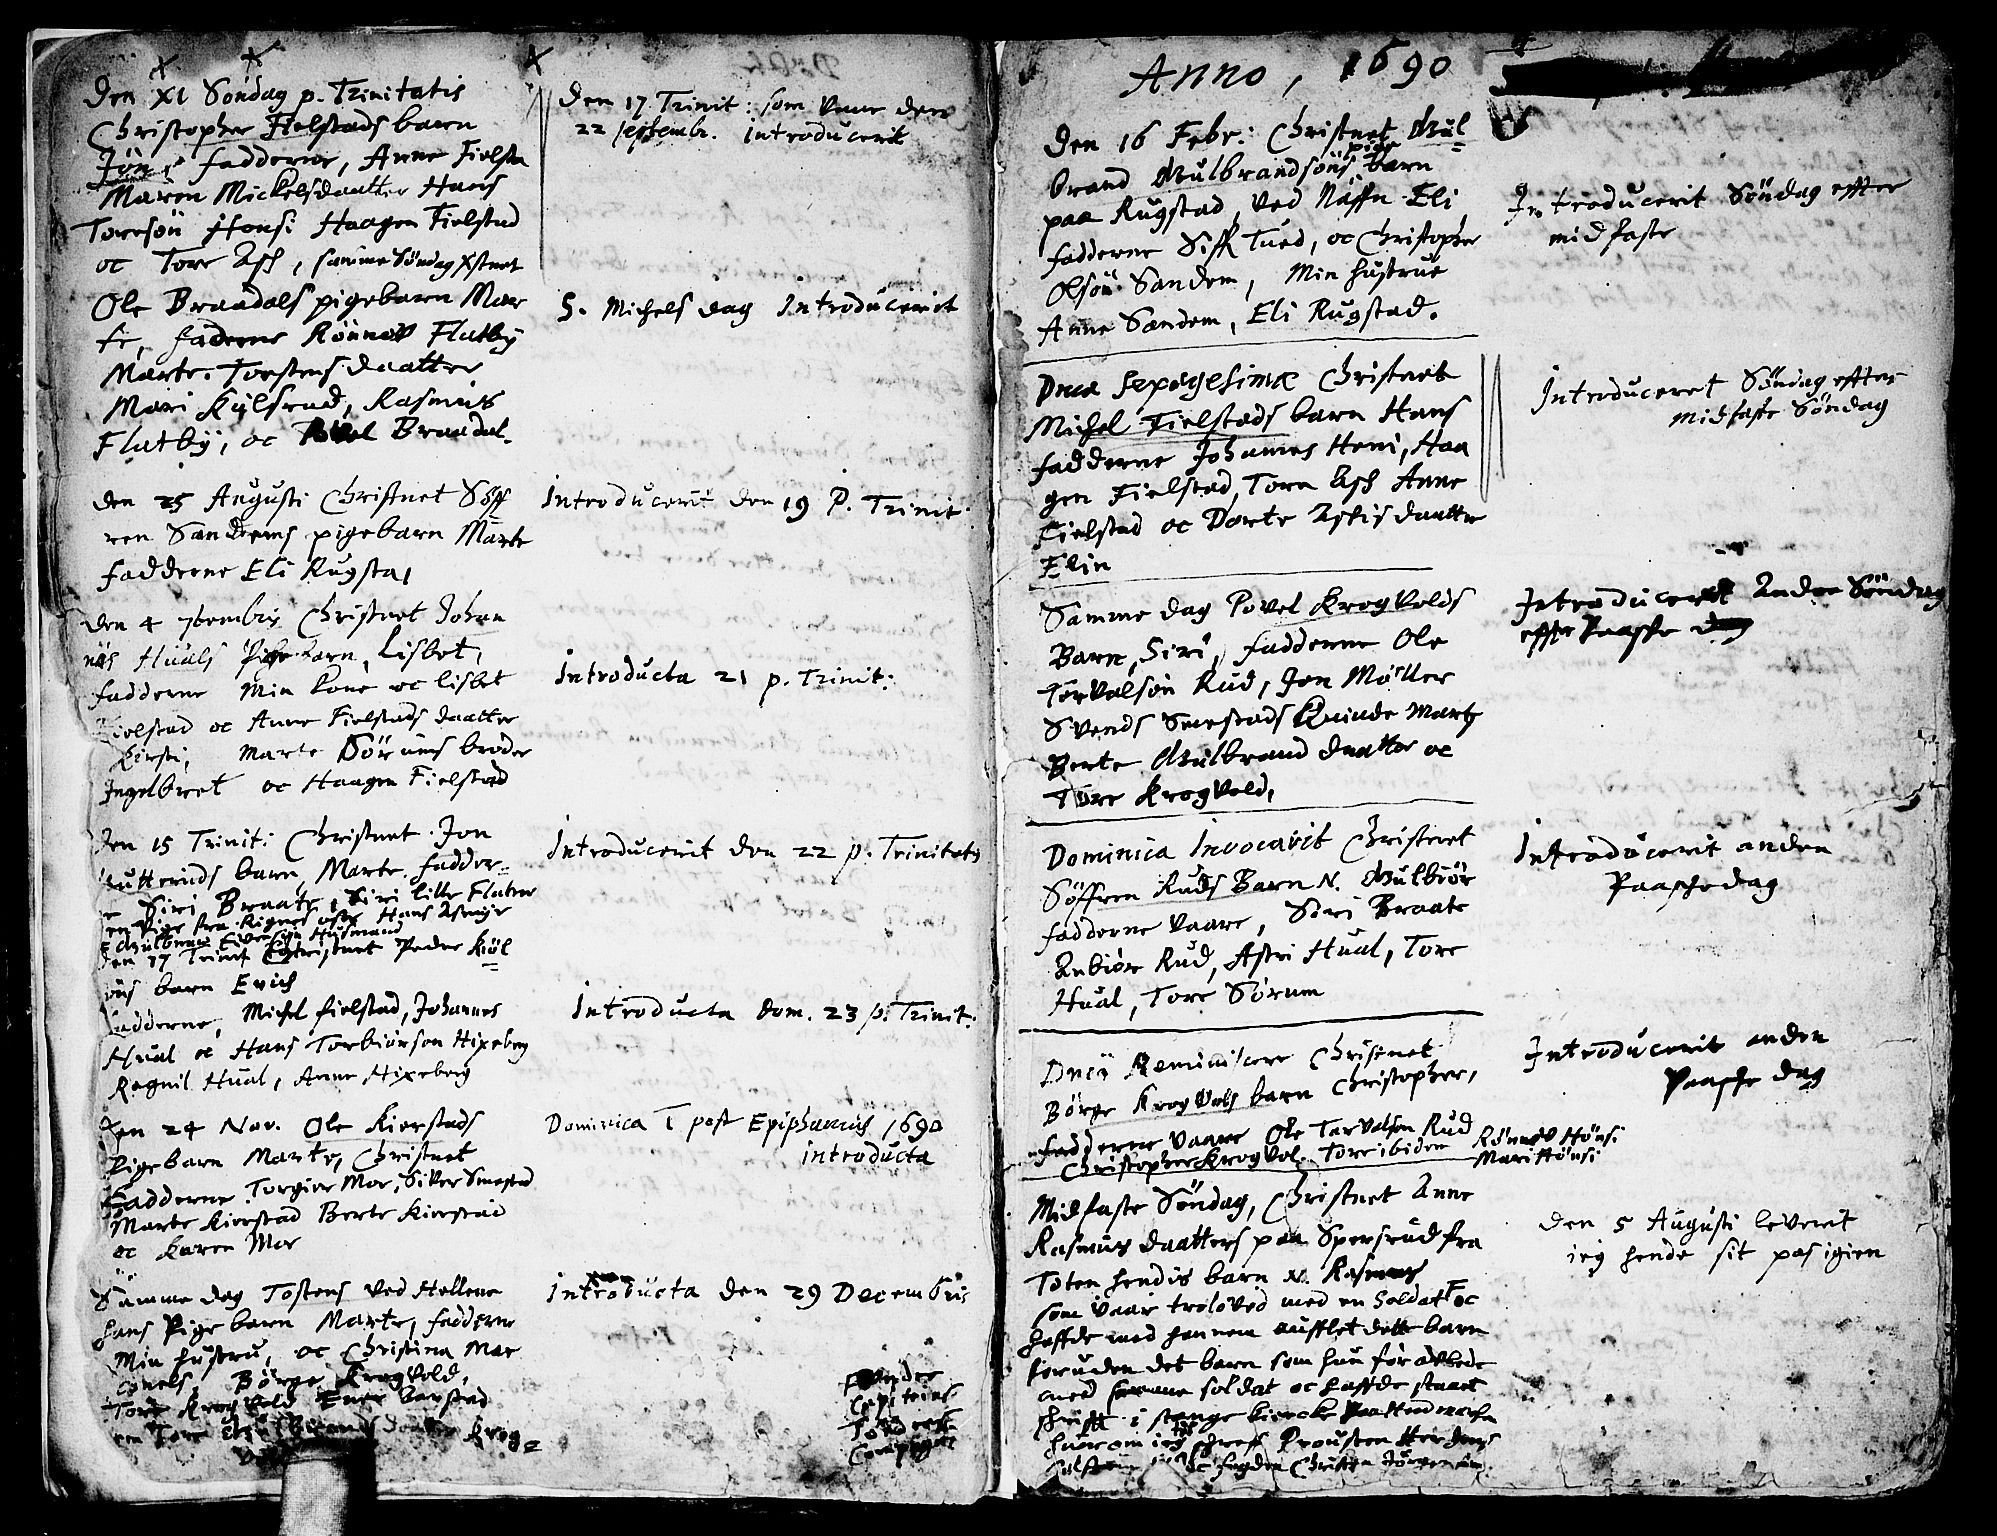 Den XI Söndag p. Trinitatis
Christopher Fielstads barn
Jön, fadderne, Anne Fielsta
Maren Mickelsdaatter Hans
Toresön Honsi Haagen Fielstad
oc Tore Asch, samme Söndag Xstnet
Ole Braadals pigebarn Mar
te, faderne Rönnov Flatbÿ
Marte Torstens daatter
Mari Kÿlsrud, Rasmus
Flatbÿ, oc Povel Braadal.
den 25 Augusti Christnet Söff
ren Sandems pigebarn Marte
fadderne Eli Rugsta,
den 4 7tembris Christnet Johan
nes Huals Pigebarn, Lisbet,
fadderne Min kone oc lisbet
Fielstad oc Anne Fielstads daatter
Kirsti, Marte Sörums broder
Ingelbret oc Haagen Fielstad
Den 15 Trinit: Christnet Jon
barn Marte. fadder
Siri Braate, Siri lille Flateu
en Pige fra Hans
Eivensøn Husmand
den 17 Trinit Christnet Peder Kiöl
barn Erich
fadderne, Michel fielstad, Johannes
Hual oc Hans Torbiörson Hixeberg
Ragnil Hual, Anne Hixeberg
Den 24 Nov. Ole Kierstads
Pigebarn Marte, Christnet
Fadderne Torgier Mor, Siver Smestad
Marte Kierstad Berte Kierstad
oc Karen Mor
Samme dag Tostens ved Hellene
hans Pige barn Marte, fadderne
Min hustru, oc Christina Mar
Börge Krogvold,
Tore Krogvold
Tore daatter Krog
Den 17 Trinit: som vaar den
22 septembr. introducerit
S. Michels dag Introducerit
Introducerit den 19 P. Trinit.
Introducta 21 p. Trinit:
Introducerit den 22 p. Trinitatis
Introducta dom. 23 p. Trinit.
Dominica I post Epiphanias 1690
introducta
Introducta den 29 Decembris
Capiteins
Compagni
Anno, 1690
Den 16 Febr: Christnet Gul
pige
brand Gulbrandsöns barn
paa Rugstad, ved Naffn Eli
fadderne Siff Tued, oc Christopher
Olsön Sandem, Min hustrue
Anne Sandem, Eli Rugstad.
Introducerit Söndag effter
midfaste
Dnca Septagesima Christnet
Michel Fielstads barn Hans
fadderne Johannes Heni, Haa
gen Fielstad, Tore Asch Anne
Fielstad oc Dorte Aslis daatter
Elin
Introduceret Söndag effter
Midfaste Söndag
Samme dag Povel Krogvolds
Barn, Siri, fadderne Ole
Torvalsön Rud, Jon Møller
Svends Smestads Quinde Marte
Berte Gulbrand daatter oc
Tore Krogvold,
Introduceret Anden Söndag
effter Paaske
Dominica Invocavit Christnet
Söffren Ruds Barn N. Gulbiör
fadderne vaare, Siri Braate
Anbiör Rud, Astri Hual, Tore
Hual, Tore Sörum
Introducerit anden
Paaschedag
Dnca Reminiscere Christnet
Börge Krogvols barn Christopher,
fadderne vaare Ole Torvalsen Rud Rönnov Hönsi
Christopher Krogvol. Tore ibidem Mari Hönsi
Introducerit anden
Paasche dag
Midfaste Söndag, Christnet Anne
Rasmus daatters paa Spersrud fra
Toten hendis barn N. Rasmus
som vaar troloved med en Soldat oc
haffde med hannem aufflet dette barn
foruden det barn som hun för aulede
med samme soldat oc haffde staaet
skrifft i stange Kiercke
huorom ieg schreff Prousten Her Jens
oc fogden Christen
Den 5 Augusti leverit
ieg hende sit pas igien